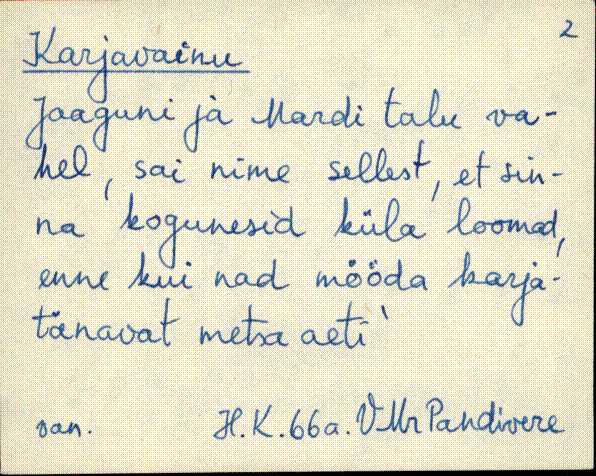 2
Karjavainu
Jaaguni ja Mardi talu va-
hel, sai nime sellest, et sin-
na kogunesid küla loomad,
enne kui nad mööda karja-
tänavat metsa aeti
van. H.K. 66a. VMr Pandivere